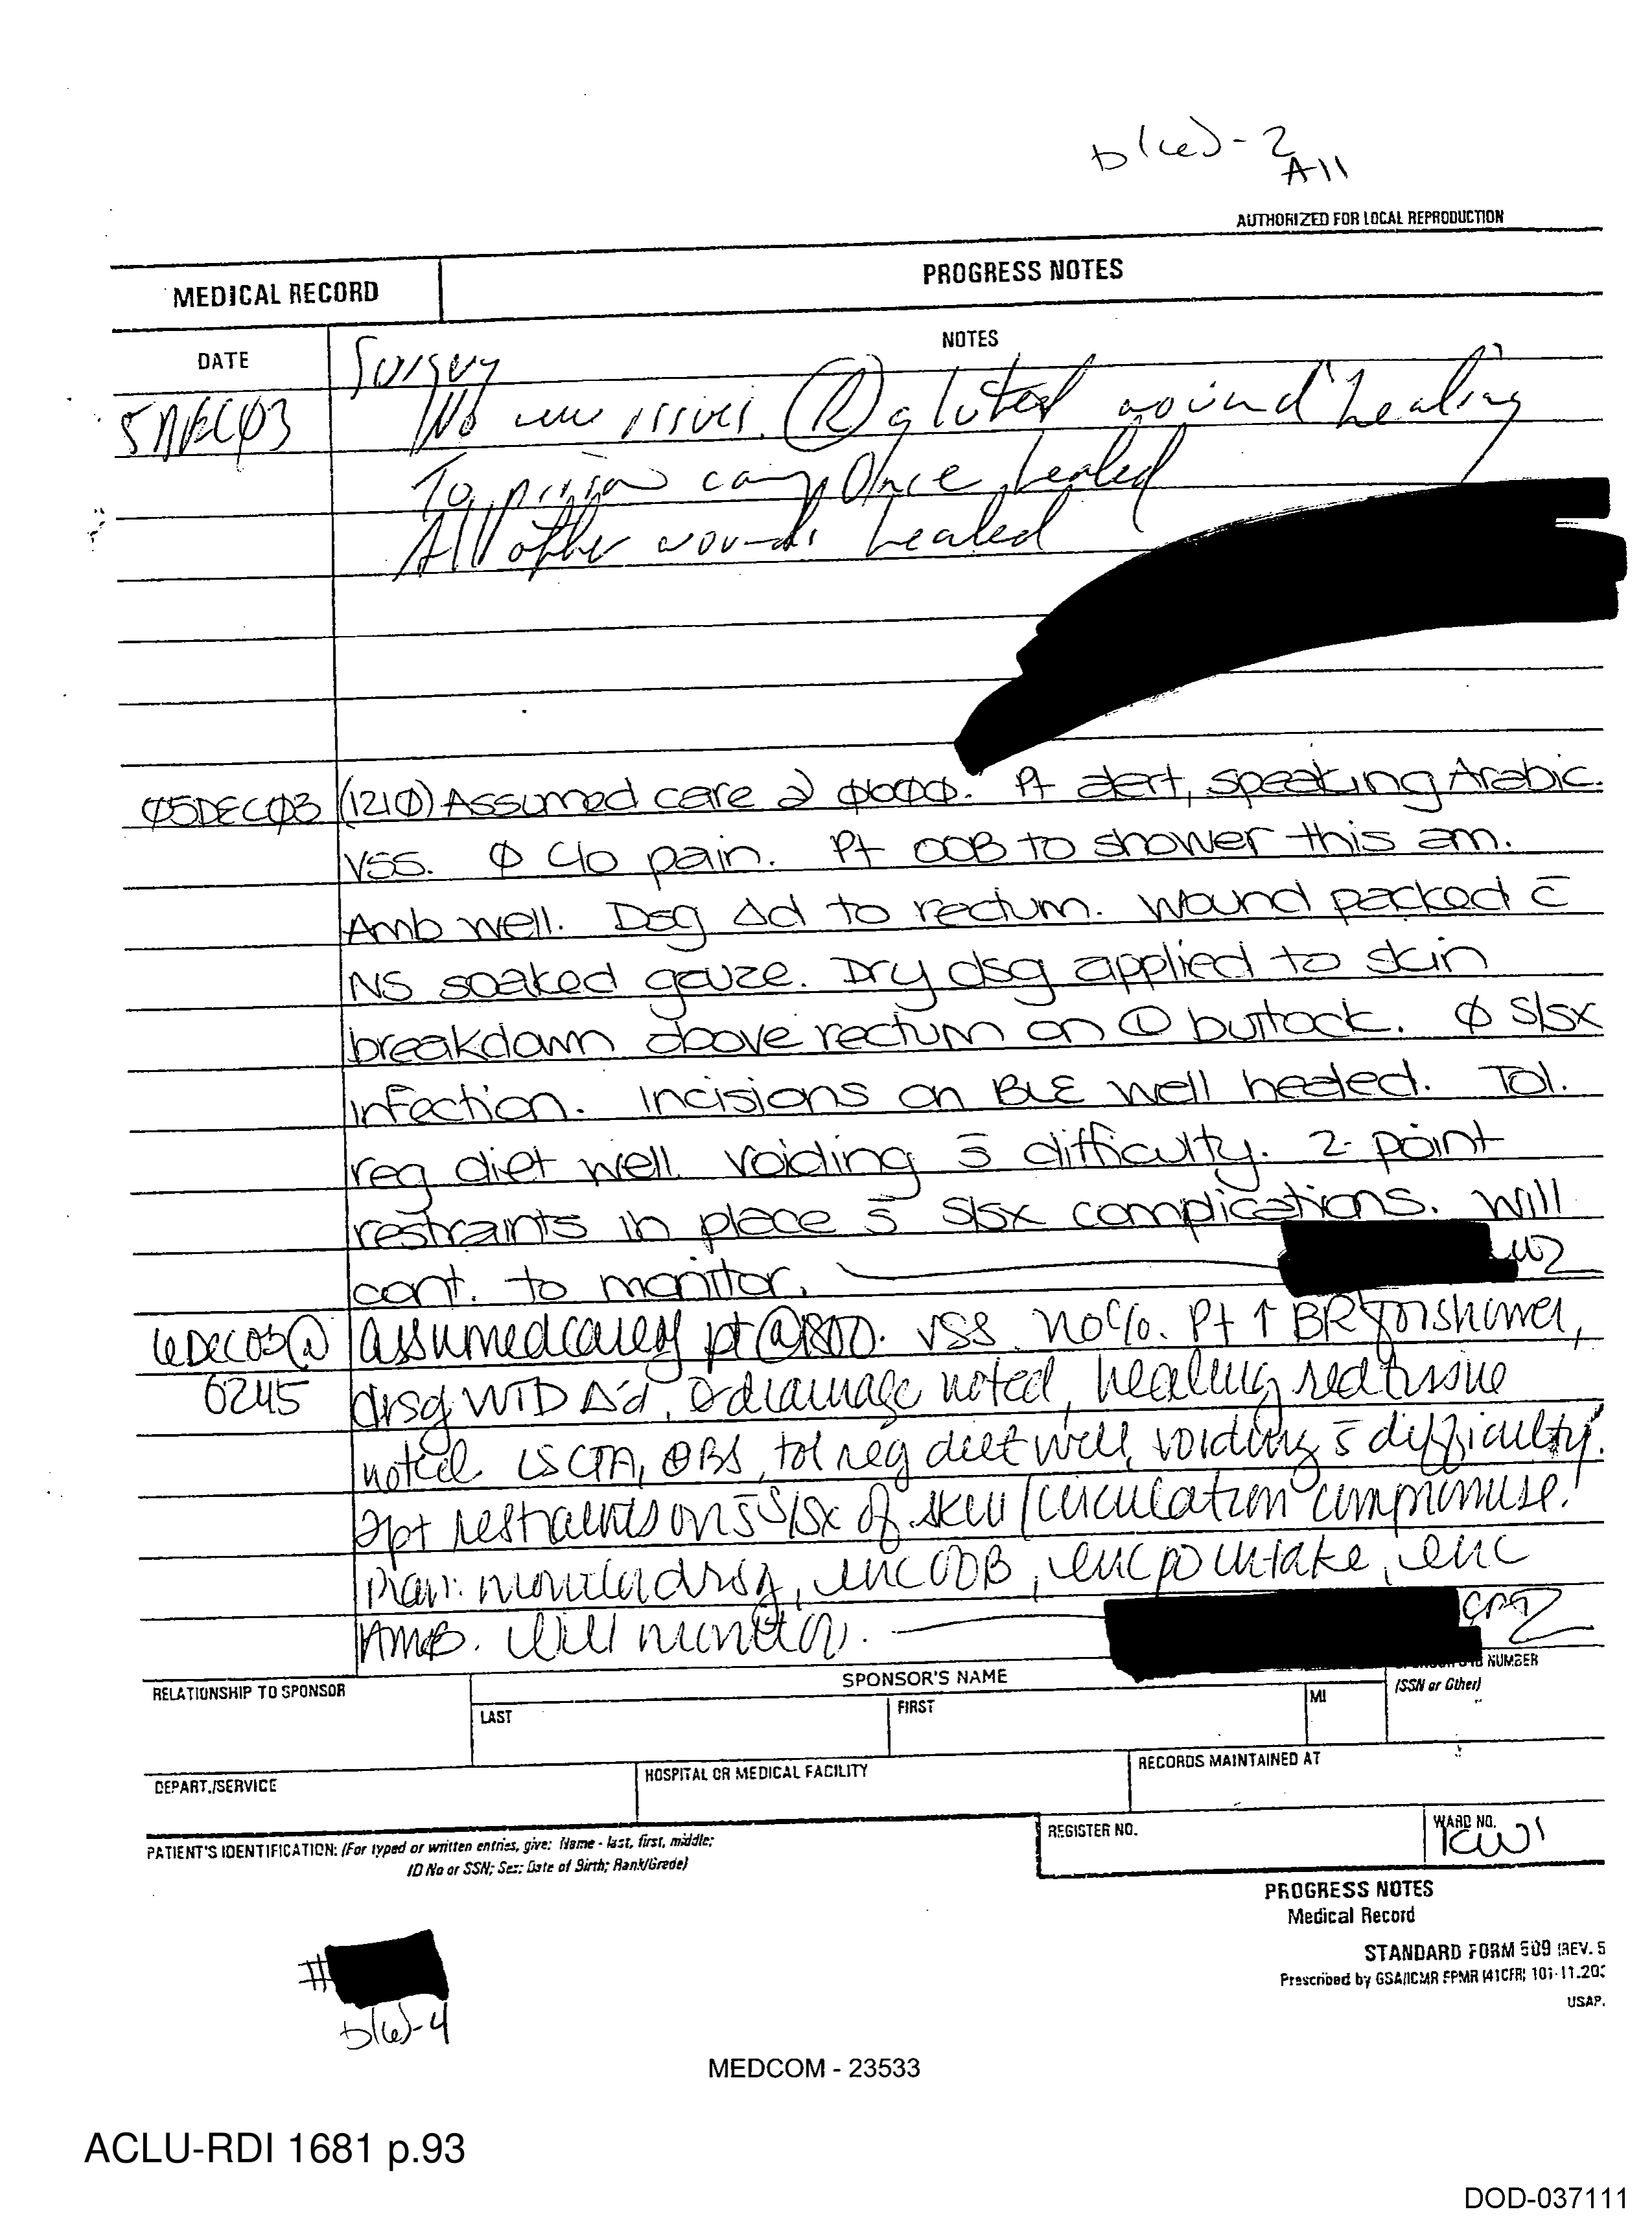 b(6)-2
All
AUTHORIZED FOR LOCAL REPRODUCTION
MEDICAL RECORD
PROGRESS NOTES
DATE
NOTES
Surgery
5DECØ3
No new issues. Ⓡ gluteal wound healing
To prison camp Once healed
All other wounds healed
Ø5DECØ3 (121Ø) Assumed care @ Ø6ØØ. Pt alert, speaking Arabic.
VSS. Ø c/o pain. Pt OOB to shower this am.
Amb well. Dsg Δd to rectum. Wound packed c̄
NS soaked gauze. Dry dsg applied to skin
breakdown above rectum on Ⓛ buttock. Ø S/Sx
infection. Incisions on BLE well healed. Tol.
reg diet well. Voiding s̄ difficulty. 2-point
restraints in place s̄ S/Sx complications. Will
cont. to monitor.
6DEC03@ Assumed care of pt @1800. VSS no c/o. Pt ↑ BR for shower,
0245 drsg WTD Δ'd, Ø drainage noted, healing red tissue
noted. LSCTA, ⊕BS, tol reg diet well, voiding s̄ difficulty.
2pt restraints on s̄ S/Sx of skin/circulation compromise.
Plan: monitor drsg, enc OOB, enc po intake, enc
AMB. Will monitor.
RELATIONSHIP TO SPONSOR
SPONSOR'S NAME
NUMBER
(SSN or Other)
LAST
FIRST
MI
DEPART./SERVICE
HOSPITAL OR MEDICAL FACILITY
RECORDS MAINTAINED AT
PATIENT'S IDENTIFICATION: (For typed or written entries, give: Name - last, first, middle;
ID No or SSN; Sex; Date of Birth; Rank/Grade)
REGISTER NO.
WARD NO.
ICW1
PROGRESS NOTES
Medical Record
STANDARD FORM 509 (REV. 5
Prescribed by GSA/ICMR FPMR (41CFR) 101-11.20
USAP.
#
b(6)-4
MEDCOM - 23533
ACLU-RDI 1681 p.93
DOD-037111